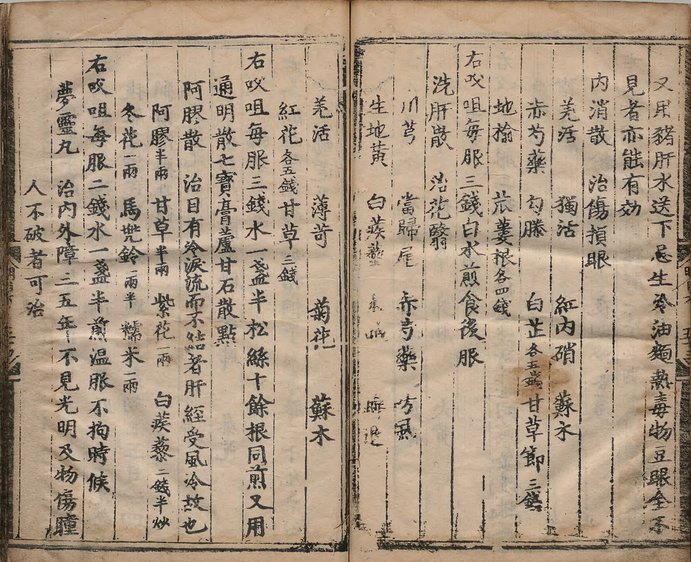 又用豬肝水送下忌生冷油麵熱毒物豆眼全不
見者亦能有效
內消散 治傷損眼
羌活 獨活 紅內硝 蘇木
赤芍藥 勾藤 白芷各五錢 甘草節三錢
地榆 苽蔞根各四錢
右㕮咀每服三錢白水煎食後服
洗肝散 治花翳
川芎 當歸尾 赤芍藥 防風
生地黃 白蒺藜
羌活 薄苛 菊花 蘇木
紅花各五錢 甘草三錢
右㕮咀每服三錢水一盞半松絲十餘根同煎又用
通明散七寶膏蘆甘石散點
阿膠散 治目有冷淚流而不結者肝經受風冷故也
阿膠半兩 甘草半兩 紫花一兩 白蒺藜二錢半炒
冬花一兩 馬兜鈴一兩半 糯米一兩
右㕮咀每服二錢水一盞半煎溫服不拘時候
夢靈丸 治內外障三五年不見光明及物傷瞳
人不破者可治